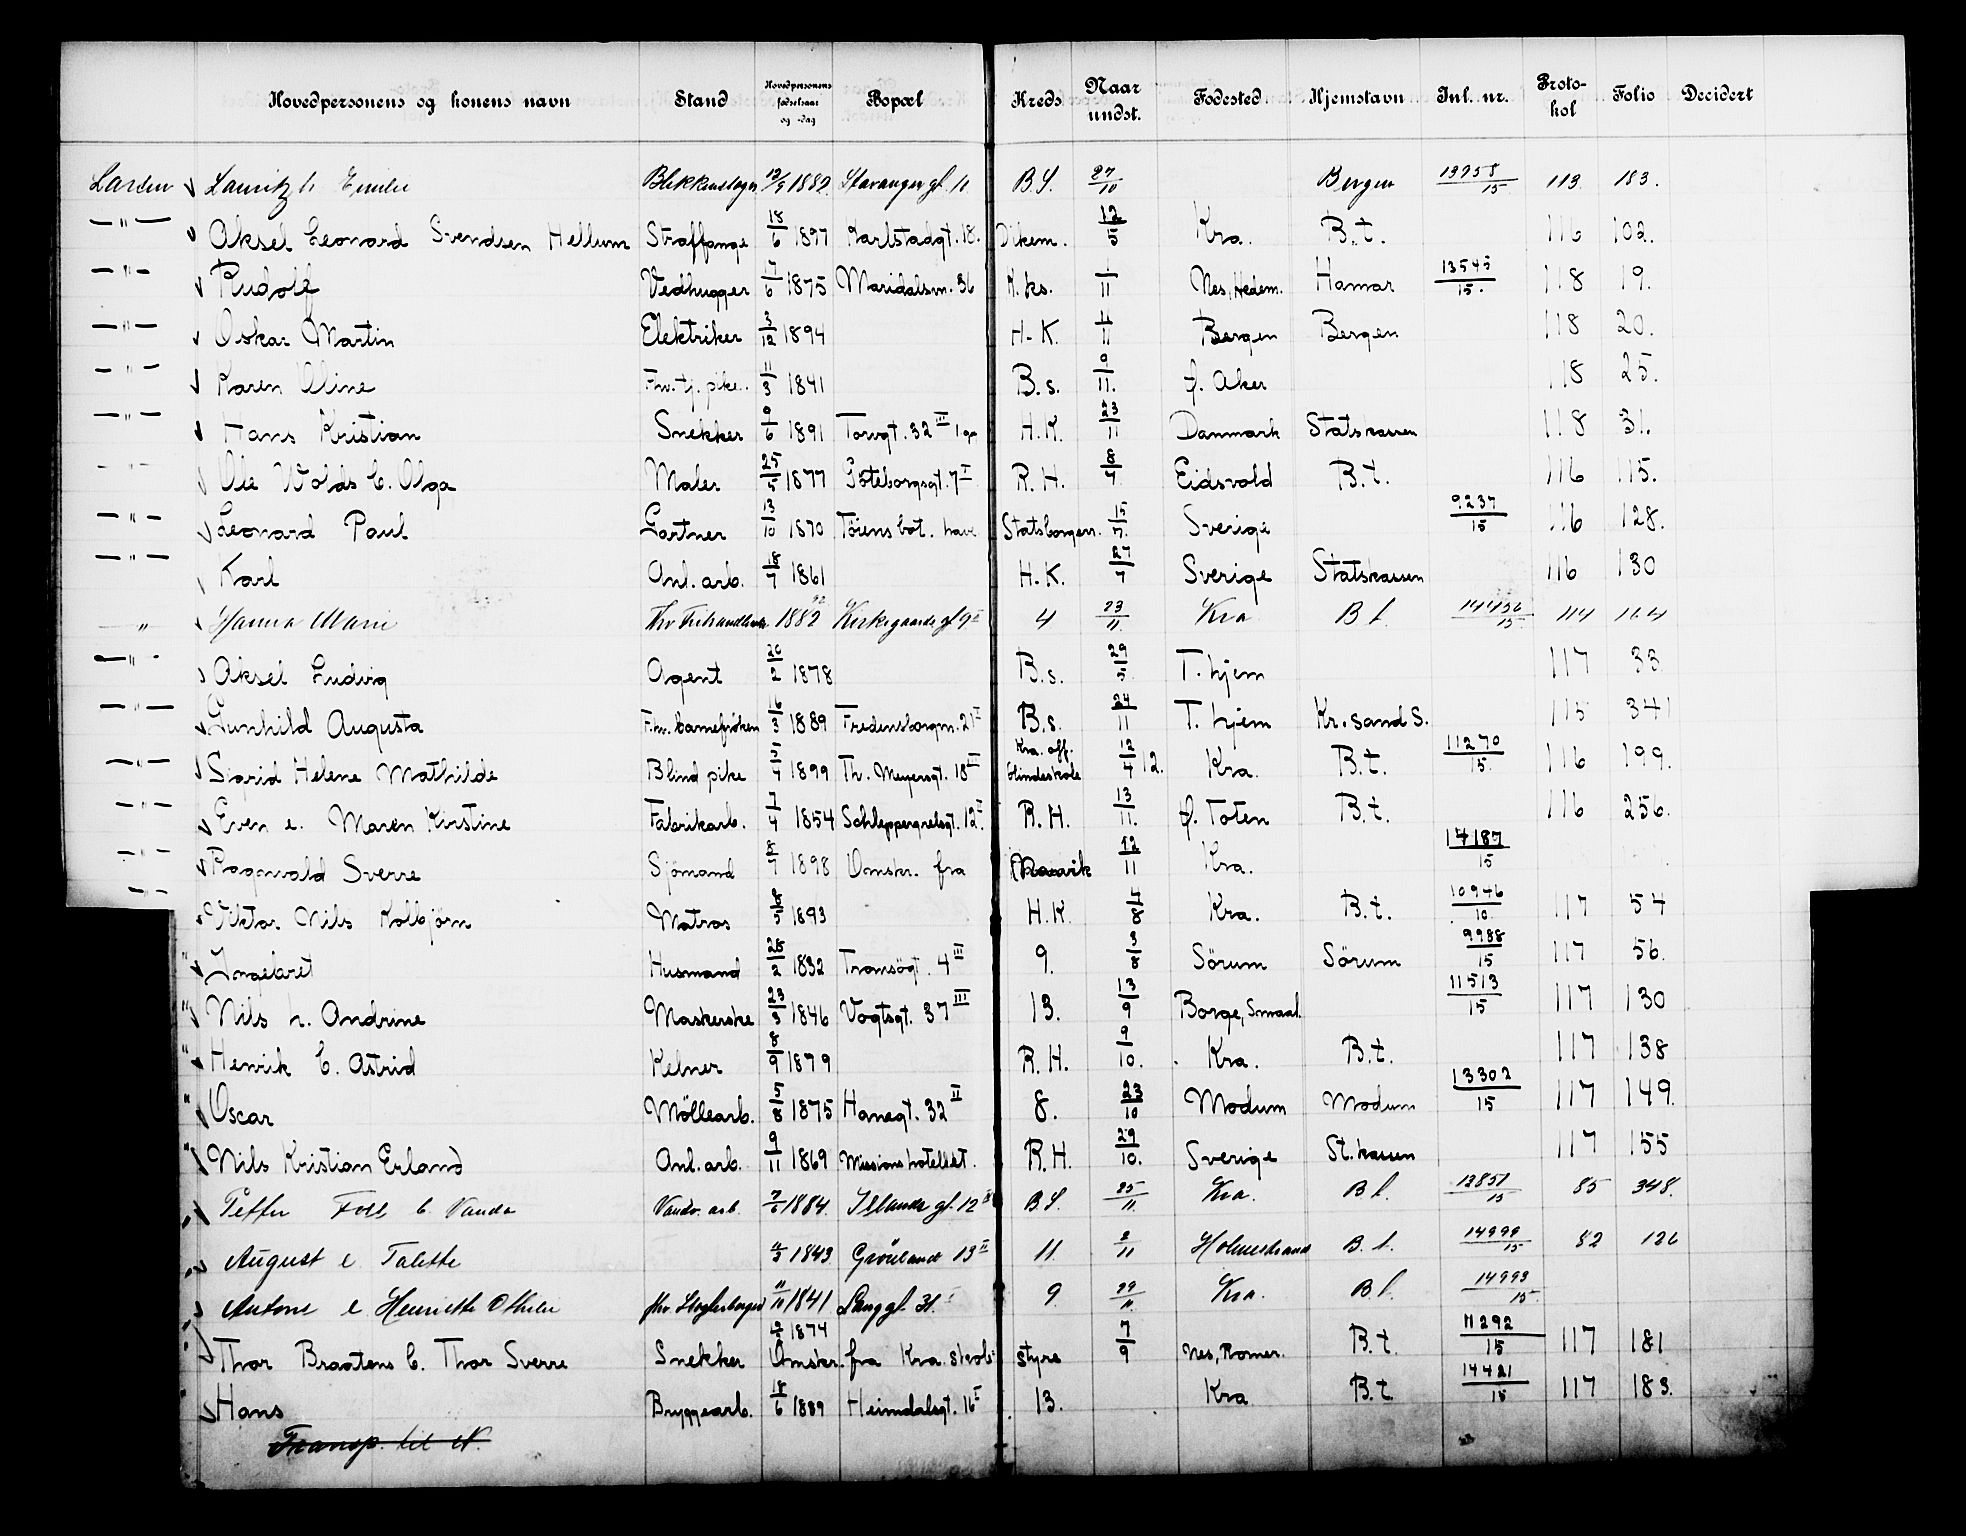 Hovedpersonens og konens navn Stand Hovedpersonens fødselsaar og -dag Bopæl Kreds Naar undst. Fødested Hjemstavn Inl. nr. Protokol Folio Decidert
Larsen Lauritz h Emilie Blikkenslager 12/9 1882 Stavangergt. 11 B.S. 27/10 Bergen 13958/15 113 183.
—"— Aksel Leonard Svendsen Hellum Straffange 18/6 1897 Karlstadgt. 18. Dikem. 12/5 Kra. B.t. 116 102.
—"— Rudolf Vedhugger 7/6 1875 Maridalsvn. 36 M.ks. 1/11 Nes, Hedem. Hamar 13545/15. 118 19.
—"— Oskar Martin Elektriker 3/12 1894 H.K. 4/11 Bergen Bergen 118 20.
—"— Karen Oline Fhv. tj. pike. 11/3 1841 B.s. 9/11. f. Aker 118 25.
—"— Hans Kristian Snekker 9/6 1891 Torvgt. 32 III H.K. 23/11 Danmark Statskassen 118 31.
—"— Ole Wolds E. Olga Maler 25/5 1877 Göteborgsgt. 7 I R.H. 8/7 Eidsvold B.t. 116 115.
—"— Leonard Paul Gartner 13/10 1870 Töiens bot. have Statsborgerr. 15/7. Sverige 9237/15 116 128.
—"— Karl Anl. arb. 18/7 1861 H.K. 27/7 Sverige Statskassen 116 130
—"— Hanna Marie 1882 92 Kirkegaardsgt 9 I 4 23/11. Kra B.t. 14436/15 114 164
—"— Aksel Ludvig Agent 20/2 1878 B.s. 29/5. T.hjem 117 33
—"— Gunhild Augusta Fhv. barnefröken 16/3 1889 Fredensborgvn. 21 I B.s. 24/11 T.hjem Kr.sand S. 115 341
—"— Sigrid Helene Mathilde Blind pike 5/4 1899 Th. Meyersgt. 18 III Kra. off. blindeskole 12/4 12. Kra. B.t. 11270/15. 116 199.
—"— Even e. Maren Kirstine Fabrikarb. 7/4 1854 Schleppegrelsgt. 12 I. R.H. 13/11. f. Toten B.t. 116 256.
—"— Ragnvald Sverre Sjömand 8/7 1898 Omskr. fra Narvik 12/11 Kra. 14187/15
—"— Viktor Nils Kolbjörn Matros 8/5 1893 H.K. 4/8 Kra. B.t. 10946/10 117 54
" Ingebret Husmand 28/2 1832 Tromsögt. 4 III 9. 3/8 Sörum Sörum 9988/15 117 56.
" Nils h. Andrine Maskerske 23/3 1846 Vogtsgt. 37 III 13. 13/9 Borge, Smaal. 11513/15 117 130
" Henrik E. Astrid Kelner 8/9 1879 R.H. 9/10. Kra. B.t. 117 138
" Oscar Möllearb. 5/8 1875 Hansgt. 32 II 8. 23/10 Modum Modum 13302/15 117 149.
" Nils Kristian Erland Anl. arb. 9/11 1869 Missionshotellet. R.H. 29/10. Sverige St.kassen 117 155
" Petter Foss E. Vanda Vandv. arb. 7/6 1884. Illands gt. 12 B.S. 25/11. Kra. B.t. 12851/15 85 348.
" August e Talette 11/3 1843 Grönland 13 II 11. 2/11 Holmestrand B.t. 14999/15 82 126
" Antone e Henrik Othilie 11/11 1841 Langgt. 31. I 9 29/11. Kra. B.t. 14993/15.
" Thor Braatens E. Thor Sverre Snekker 1874 Omskr. fra Kra. skolestyre 7/9 Nes, Romer. B.t. 11292/15 117 181
" Hans Bryggearb. 18/6 1889 Heimdalsgt. 16 I 13. Kra B.t. 14421/15 117 183.
Transp. til N.